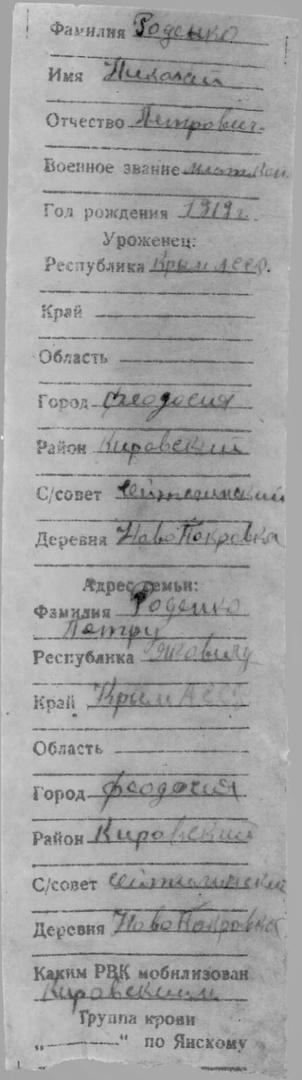 Фамилия Роденко
Имя Николай
Отчество Петрович.
Военное звание млат. Ком.
Год рождения 1919 г.
Уроженец:
Республика Крым АССР.
Край
Область
Город Феодосия
Район Кировский
С/совет
Деревня НовоПокровка
Адрес семьи:
Фамилия Роденко
Петру
Республика Яковичу
Край Крым АССР
Область
Город Феодосия
Район Кировский
С/совет
Деревня НовоПокровка
Каким РВК мобилизован
Кировским
Группа крови
„ " по Янскому